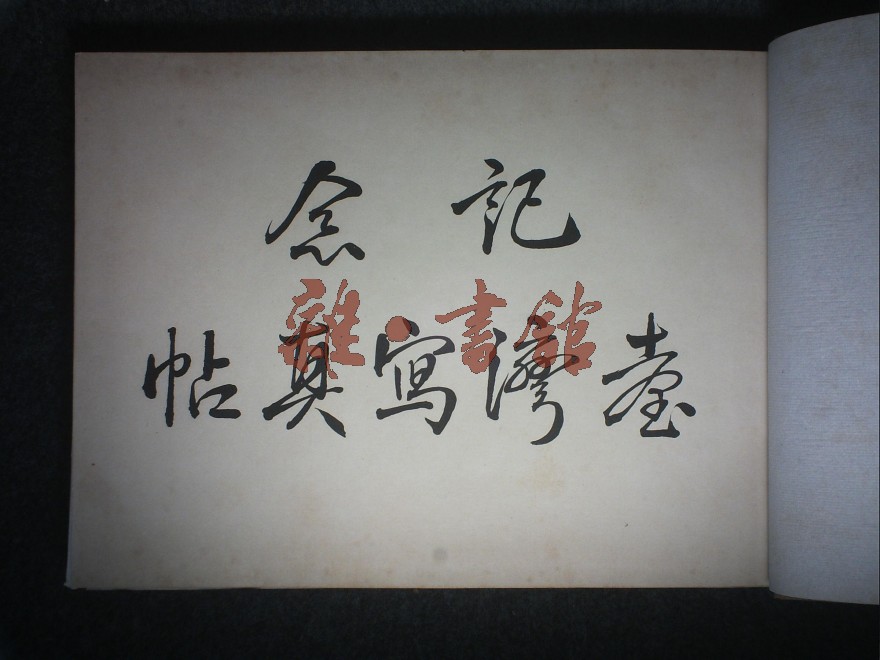 記念
雜·書館
臺灣寫真帖